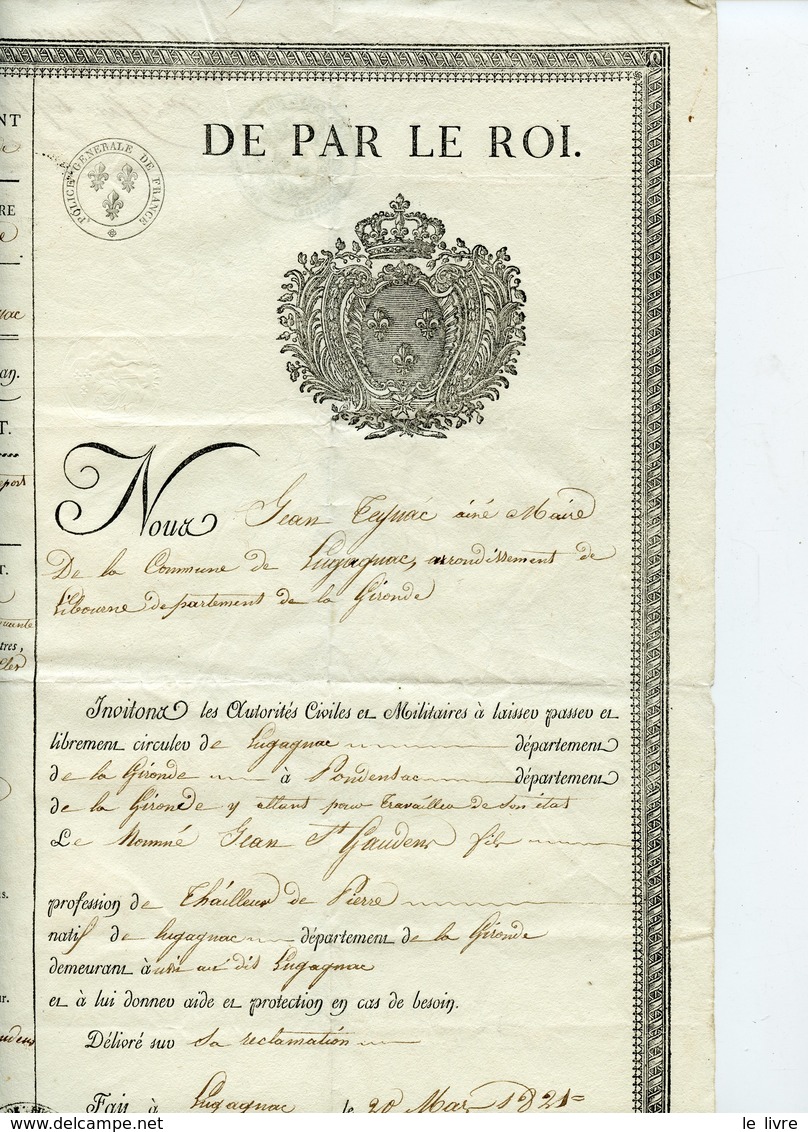 POLICE GENERALE DE FRANCE
DE PAR LE ROI.
Nous Jean Teynac ainé Maire
De la Commune de Lugagnac, arrondissement de
Libourne departement de la Gironde
Invitons les Autorités Civiles et Militaires à laisser passer et
librement circuler de Lugagnac département
de la Gironde à Pondensac département
de la Gironde y allant pour travailler de son état
Le Nommé Jean St Gaudens fils
profession de Thailleur de Pierre
natif de Lugagnac département de la Gironde
demeurant à dit Lugagnac
et à lui donner aide et protection en cas de besoin.
Délivré sur sa reclamation
Fait à Lugagnac le 20 Mars 1821
le livre